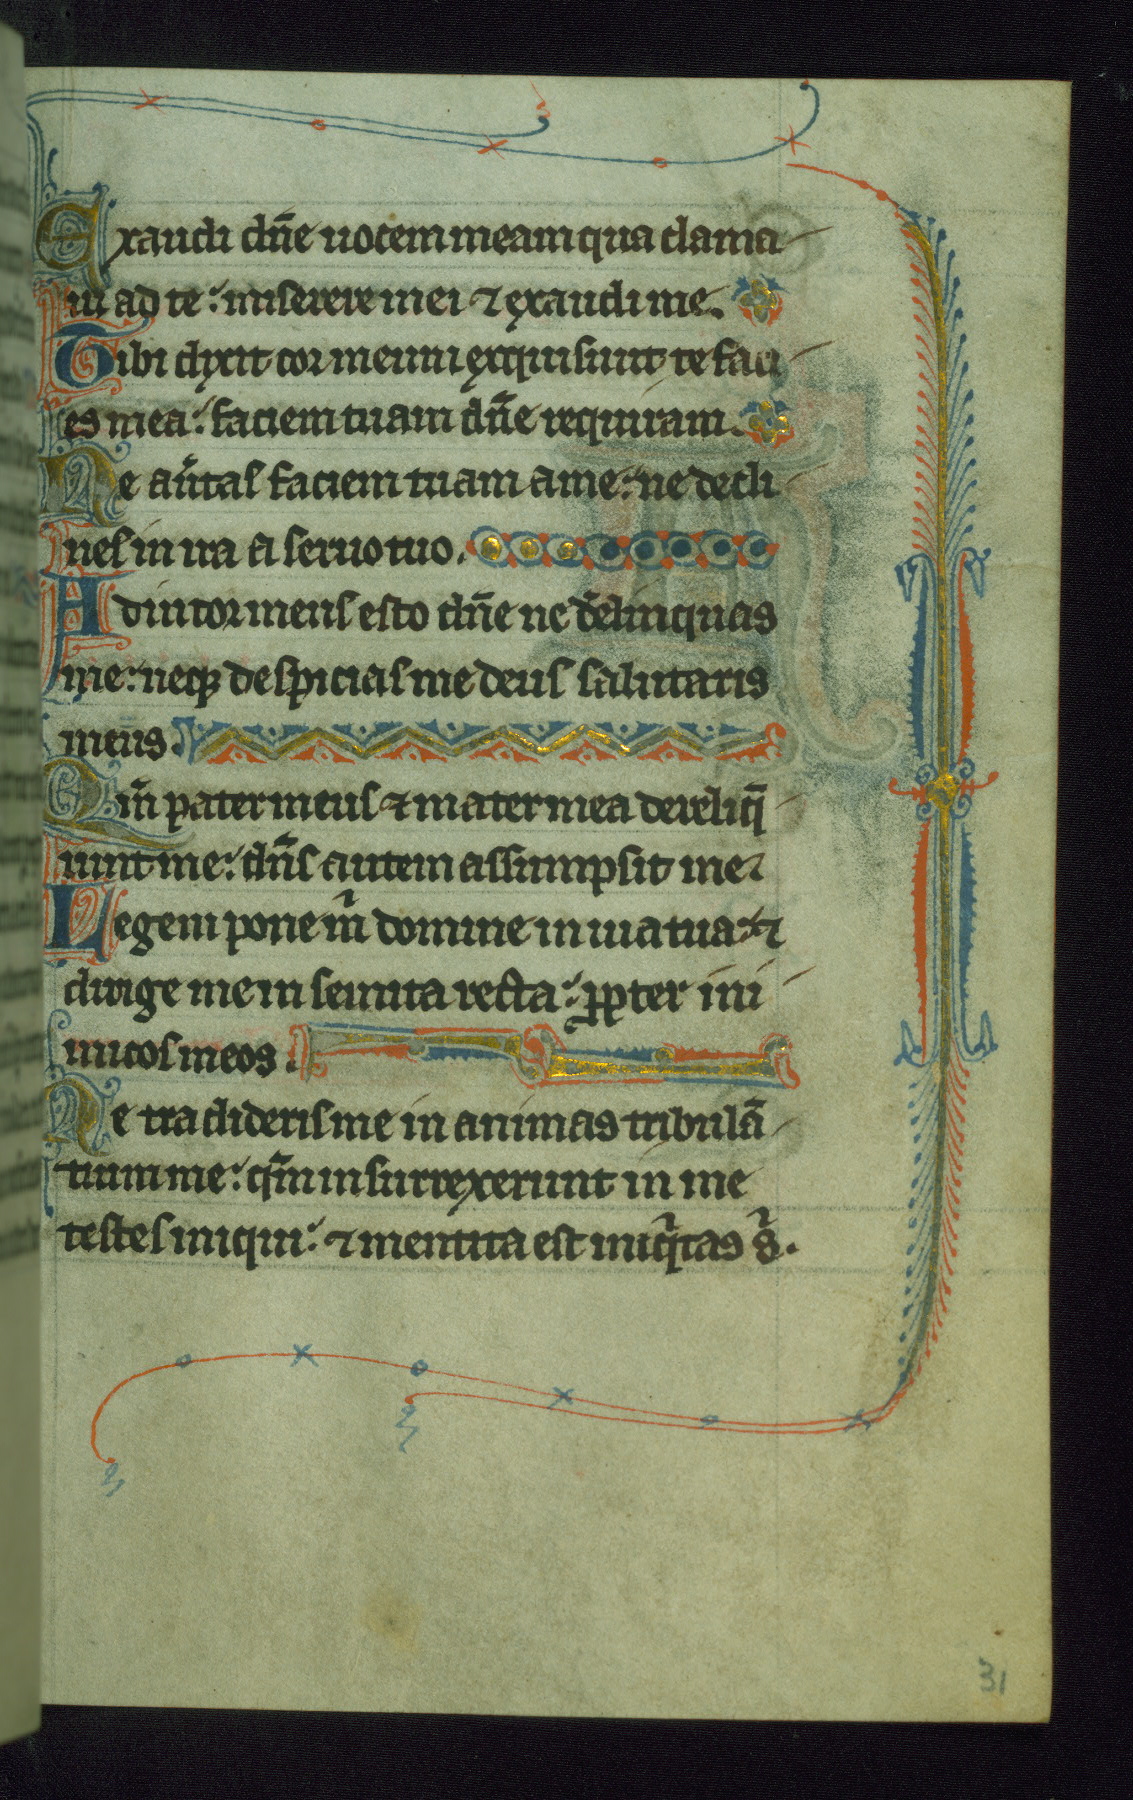 Exaudi dn̄e uocem meam qua clama
ui ad te: miserere mei ⁊ exaudi me.
Tibi dixit cor meum exquisiuit te faci
es mea: faciem tuam dn̄e requiram.
Ne au͛tas faciem tuam a me: ne decli
nes in ira a seruo tuo.
Adiutor meus esto dn̄e ne derelinquas
me: neq; despicias me deus salutaris
meus.
Qm̄ pater meus ⁊ mater mea dereliq̄
runt me: dn̄s autem assumpsit me.
Legem pone m̍ domine in uia tua: ⁊
dirige me in semita recta: ꝓpter ini
micos meos.
Ne tradideris me in animas tribulā
tium me: qm̄ insurrexerunt in me
testes iniqui: ⁊ mentita est iniq̍tas s̍.
31